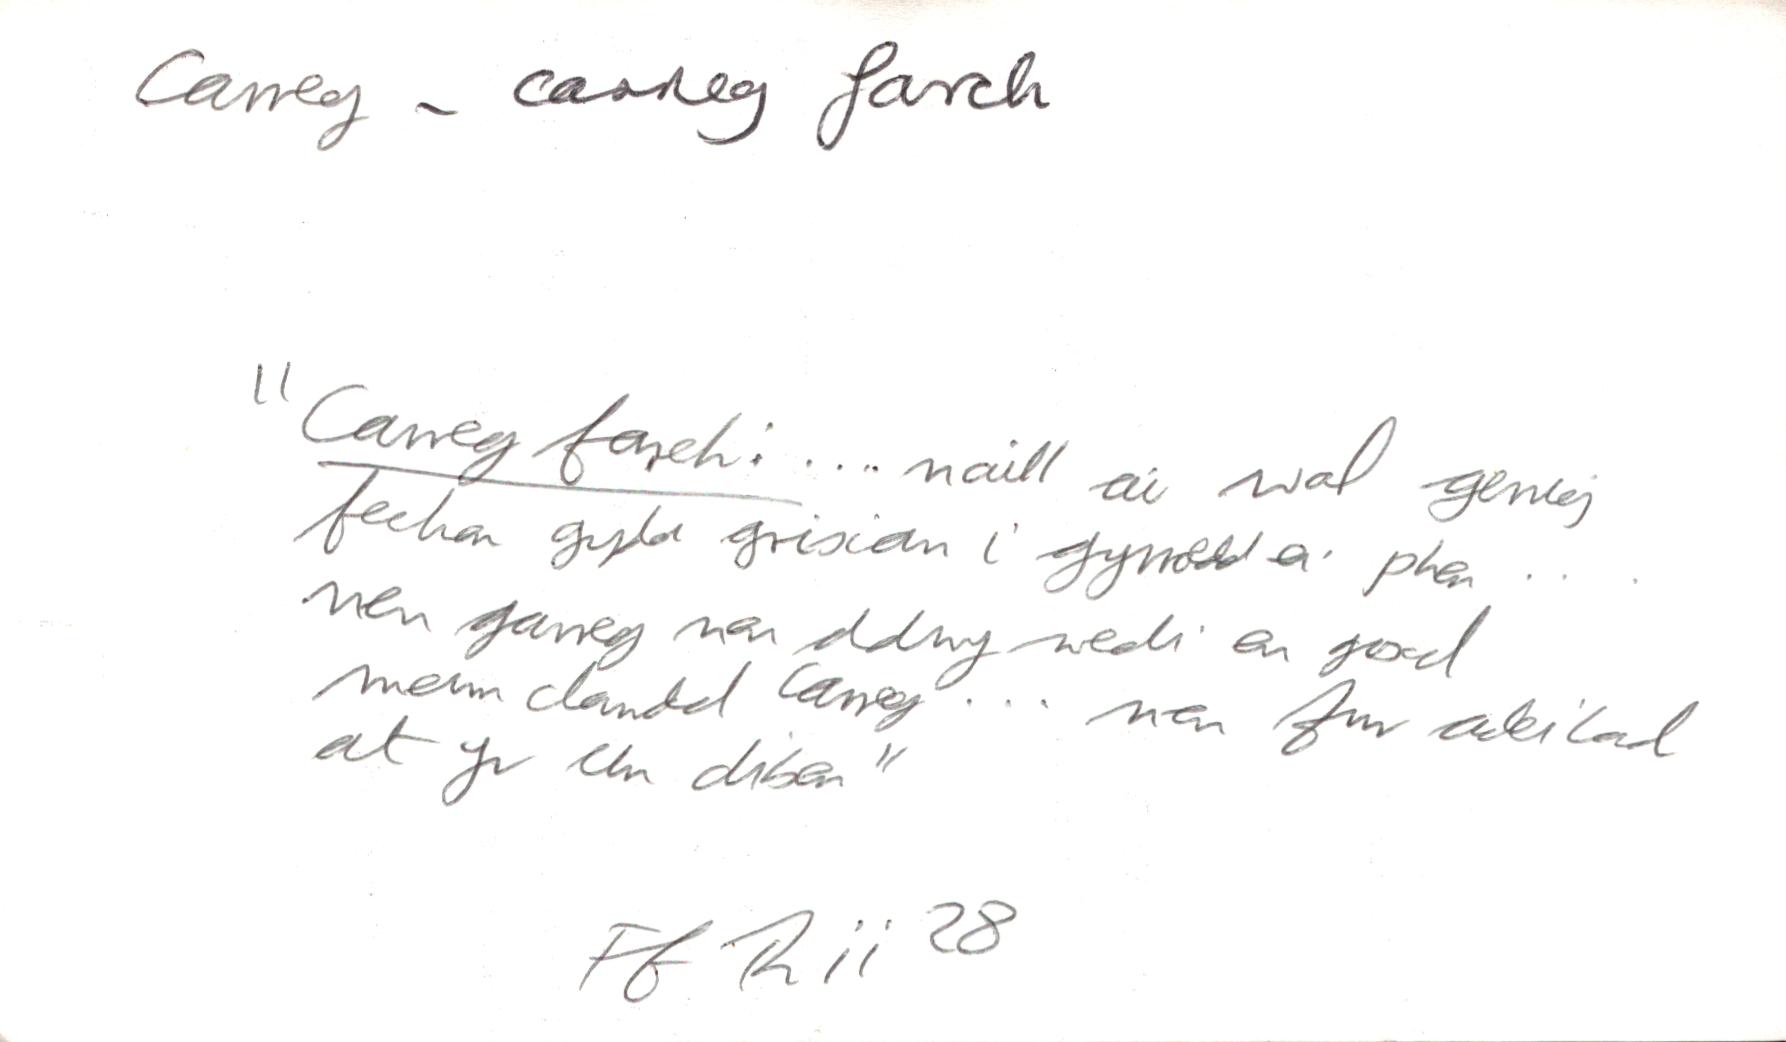 Carreg - carreg farch
"Carreg farch: .... naill ai wal gerrig
fechan gyda grisiau i gyrrôdd ei phen ....
neu garreg neu ddwy wedi eu gosod
mewn clawdd carreg ... neu fur adeilad
at yr un diben"
Ff Rii 28